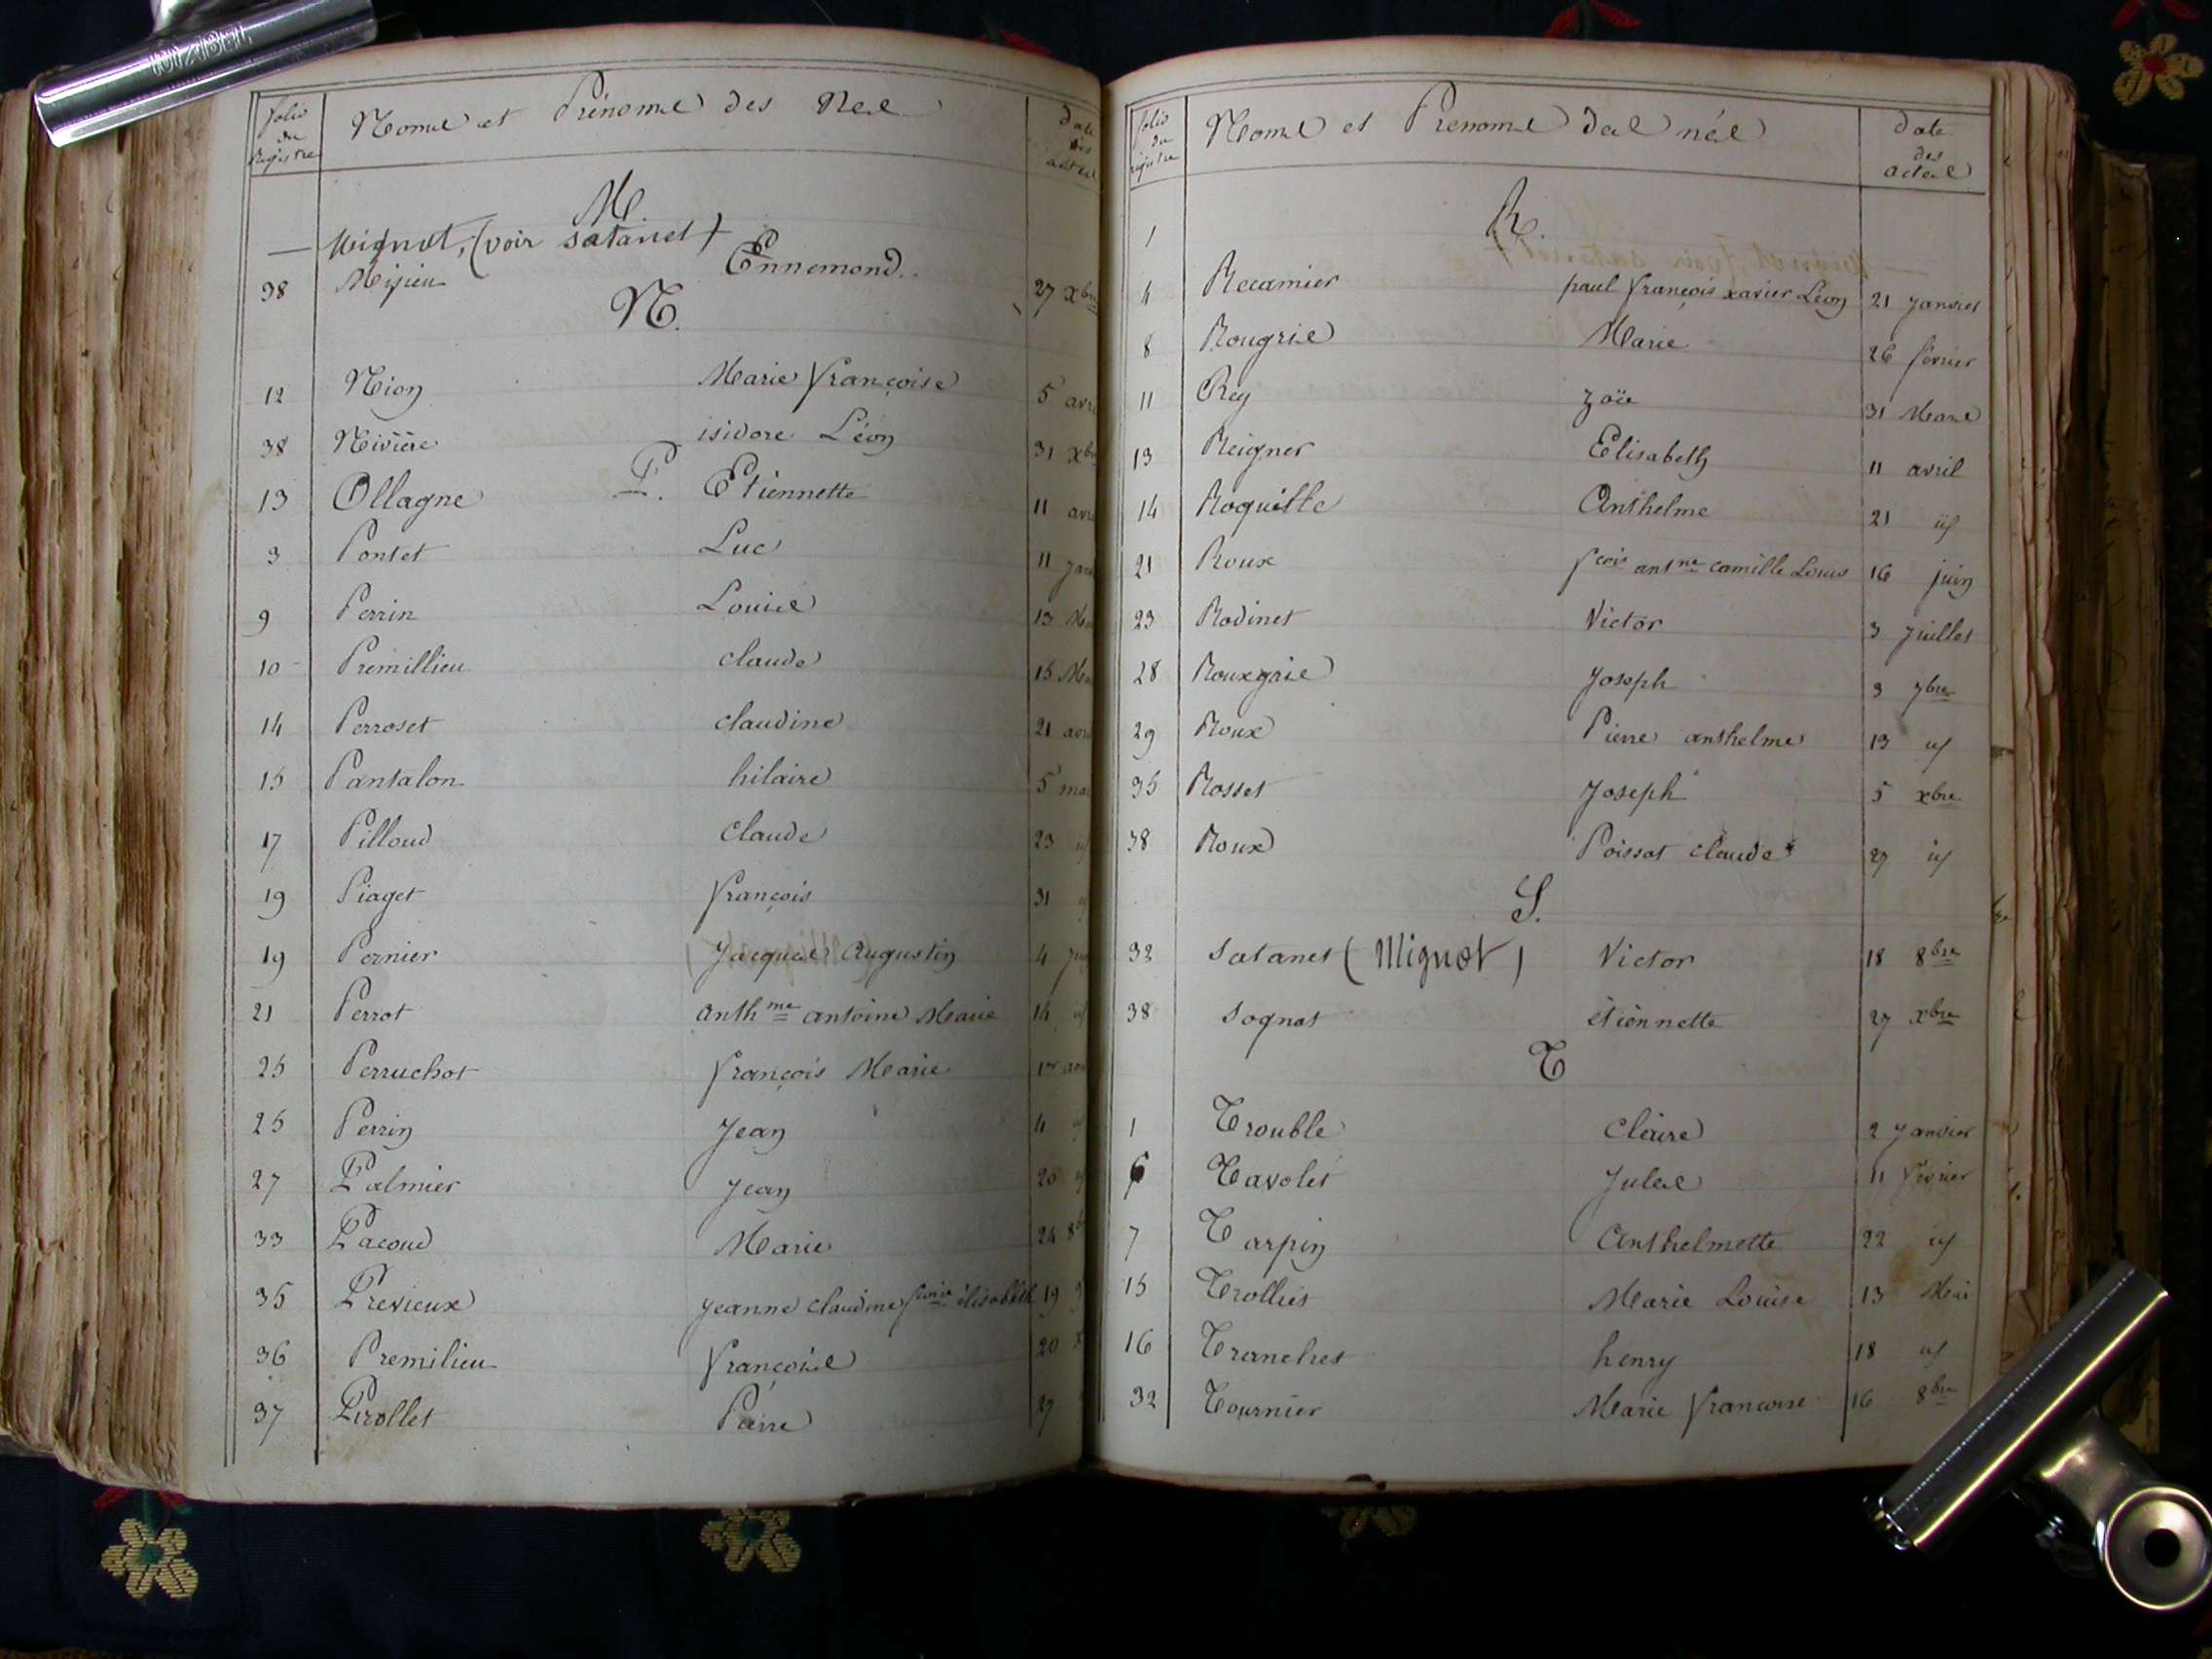 folio du Registre Noms et Prénoms des Nés date des actes
M
— Mignot, (voir satanet)
38 Misieu Ennemond 27 xbre
N.
12 Nion Marie françoise 5 avri
38 Nivière isidore Léon 31 xbre
P.
13 Ollagne Etiennette 11 avri
3 Pontet Luc 11 jan
9 Perrin Louise 13 Ma
10 Premillieu claude 15 Ma
14 Perroset claudine 21 avri
15 Pantalon hilaire 5 mai
17 Pilloud Claude 23 id
19 Piaget françois 31
19 Pernier Jacques Augustin 4 jui
21 Perrot anthme antoine Marie 14 id
25 Perruchot françois Marie 1er aou
25 Perrin Jean 4
27 Palmier Jean 20
33 Pacoud Marie 24 8b
35 Previeux jeanne claudine fçoise élisabeth 19
36 Premilieu françoise 20 x
37 Pirollet Pierre 27
folio du registre Noms et Prenoms des nés date des actes
1
R.
4 Recamier paul françois xavier Léon 21 janvier
8 Rougrie Marie 26 février
11 Rey zoïe 31 Mars
13 Reigner Elisabeth 11 avril
14 Roquille Anthelme 21 id
21 Roux fcois antne camille Louis 16 juin
23 Rodinet Victor 3 juillet
28 Rouxgrie Joseph 3 7bre
29 Roux Pierre anthelme 13 id
35 Rosset Joseph 5 xbre
38 Roux Poissat claude 27 id
S.
32 Satanet (Mignot) Victor 18 8bre
38 Sognat étiennette 27 xbre
T
1 Trouble Claire 2 janvier
6 Tavolet Jules 11 février
7 Tarpin Anthelmette 22 id
15 Trolliet Marie Louise 13 Mai
16 Tranchet henry 18 id
32 Tournier Marie francoise 16 8bre